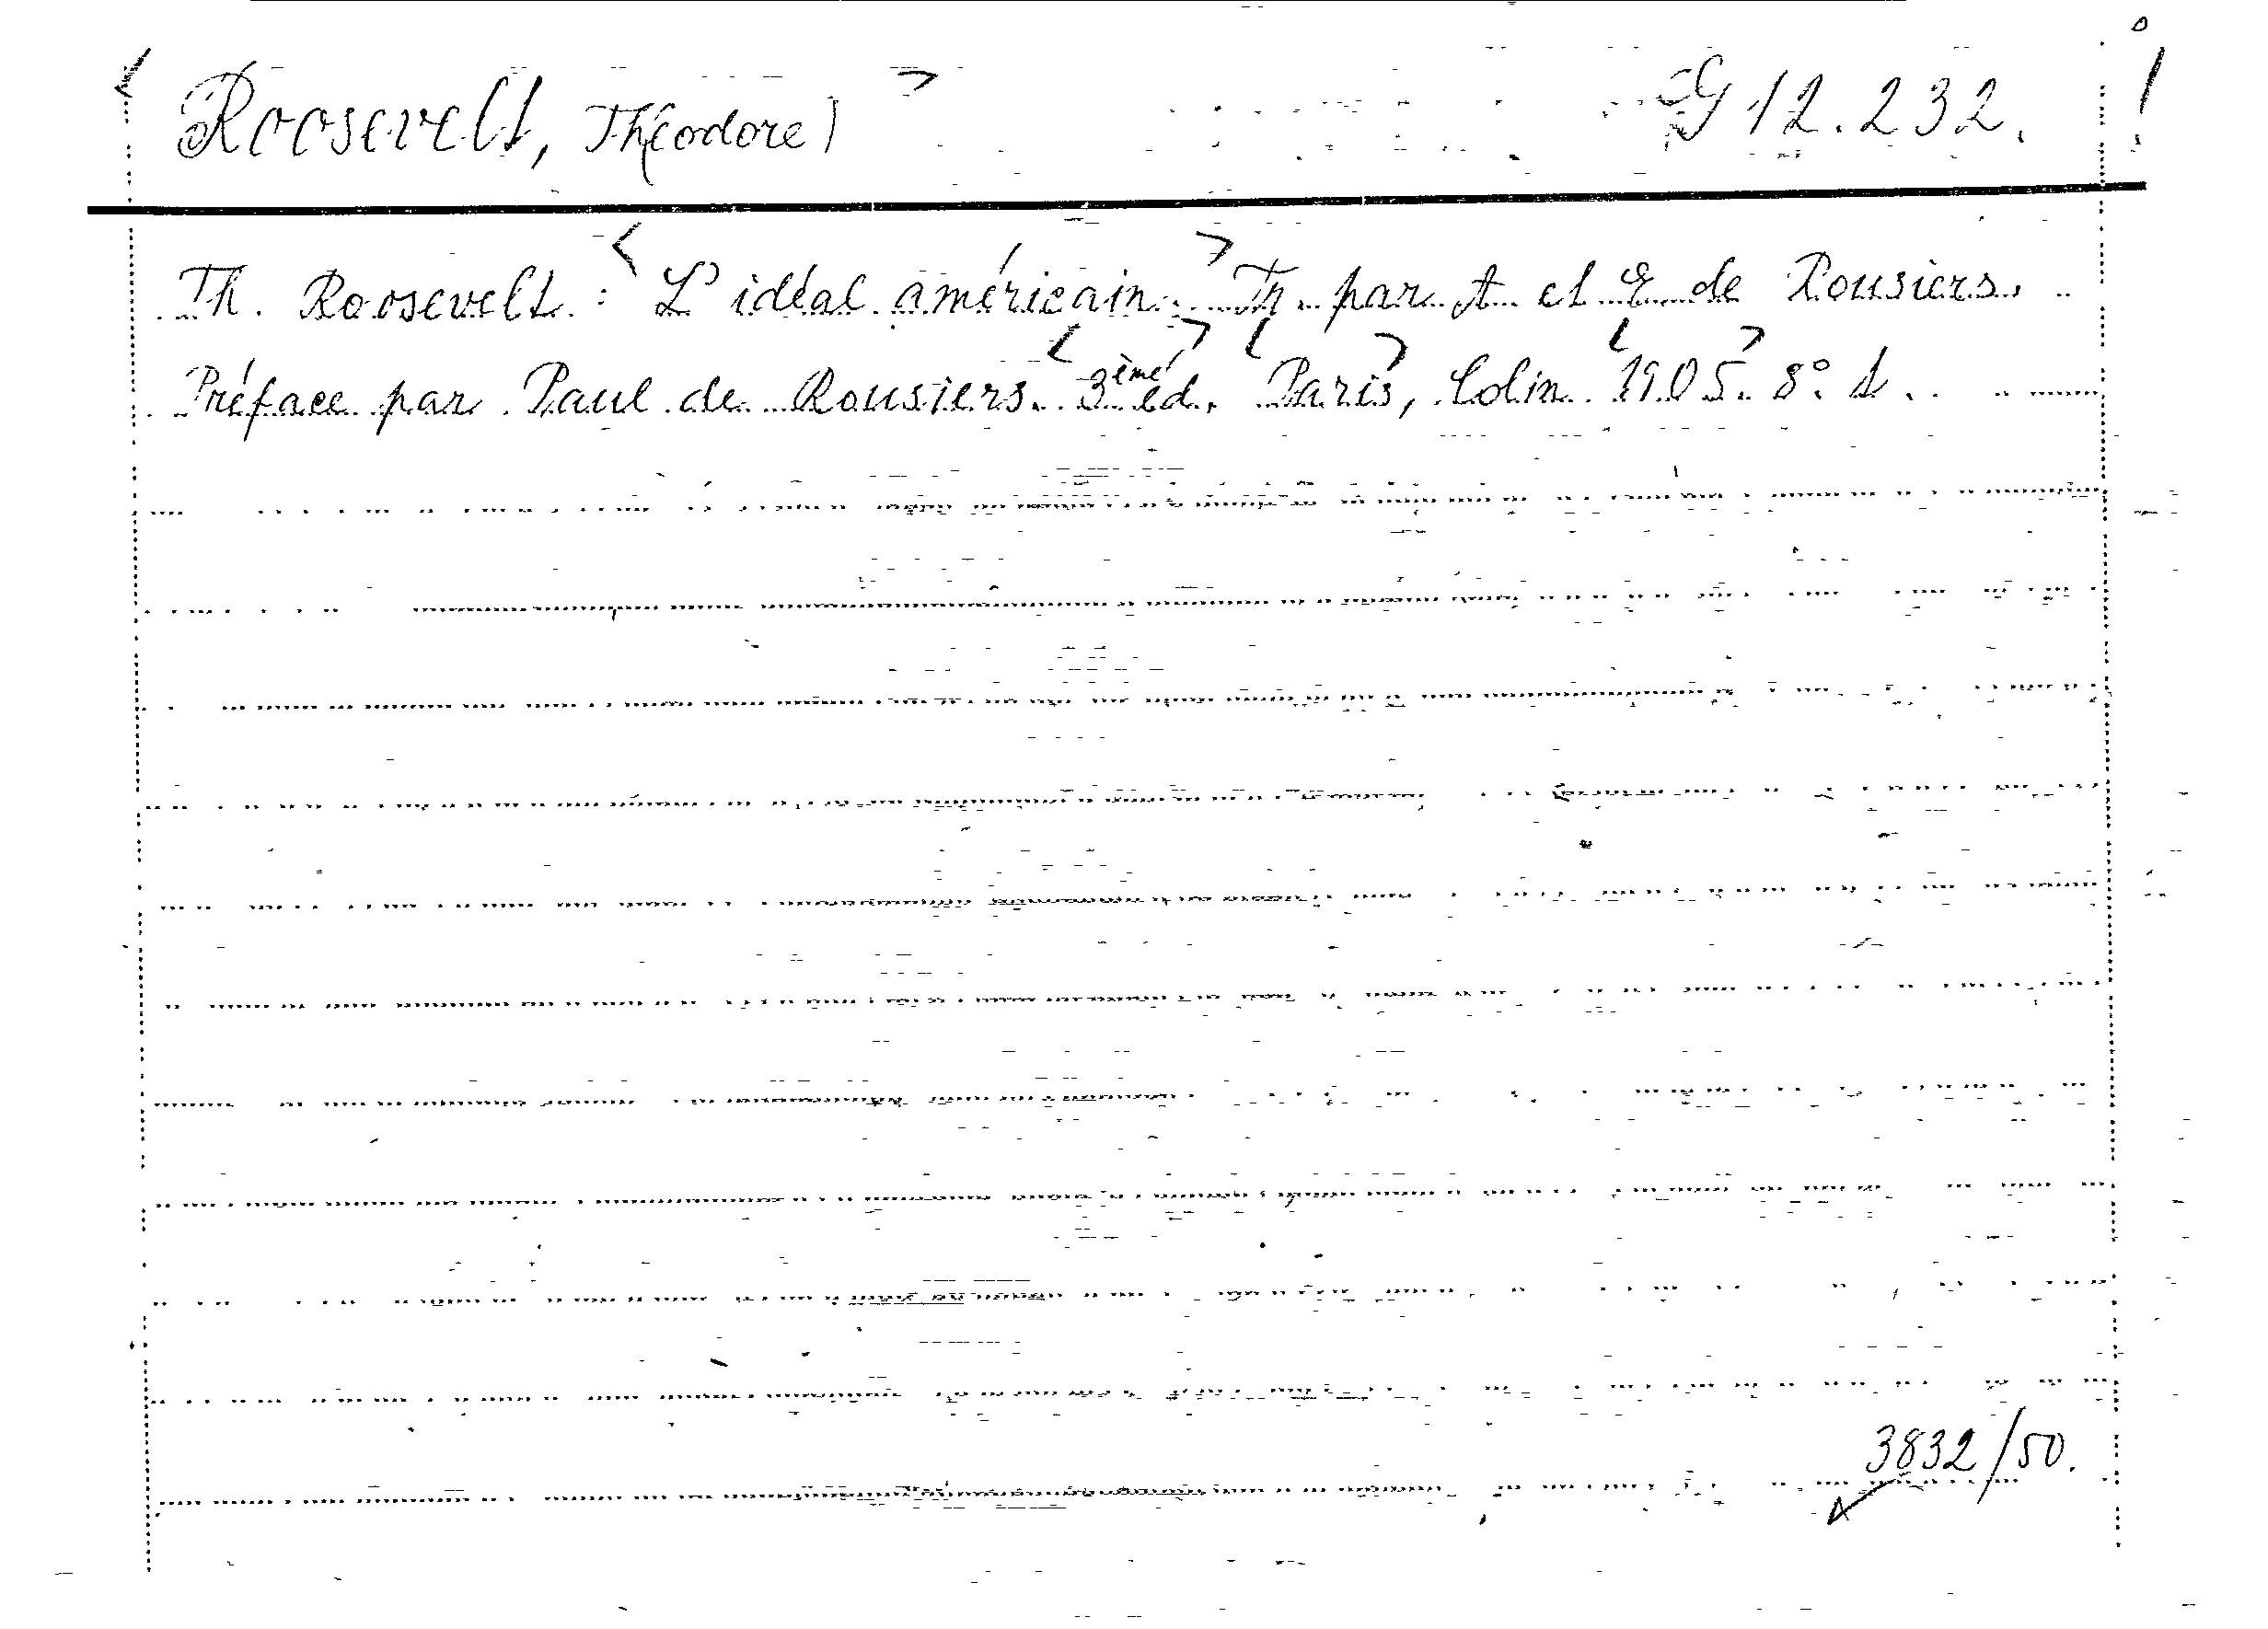 <Roosevelt, Théodore) > G 12.232. !
Th. Roosevelt: <L'idéal américain.> Tr. par A et E de Rousiers.
Préface par Paul de Rousiers. <3ème éd.> <Paris>, Colin <1905>. 8°.
3832/50.